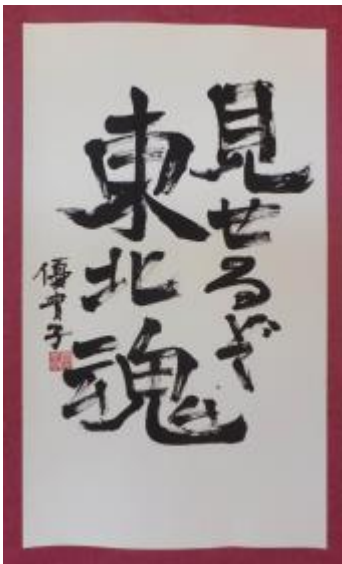 見せるぞ
東北魂
優貴子